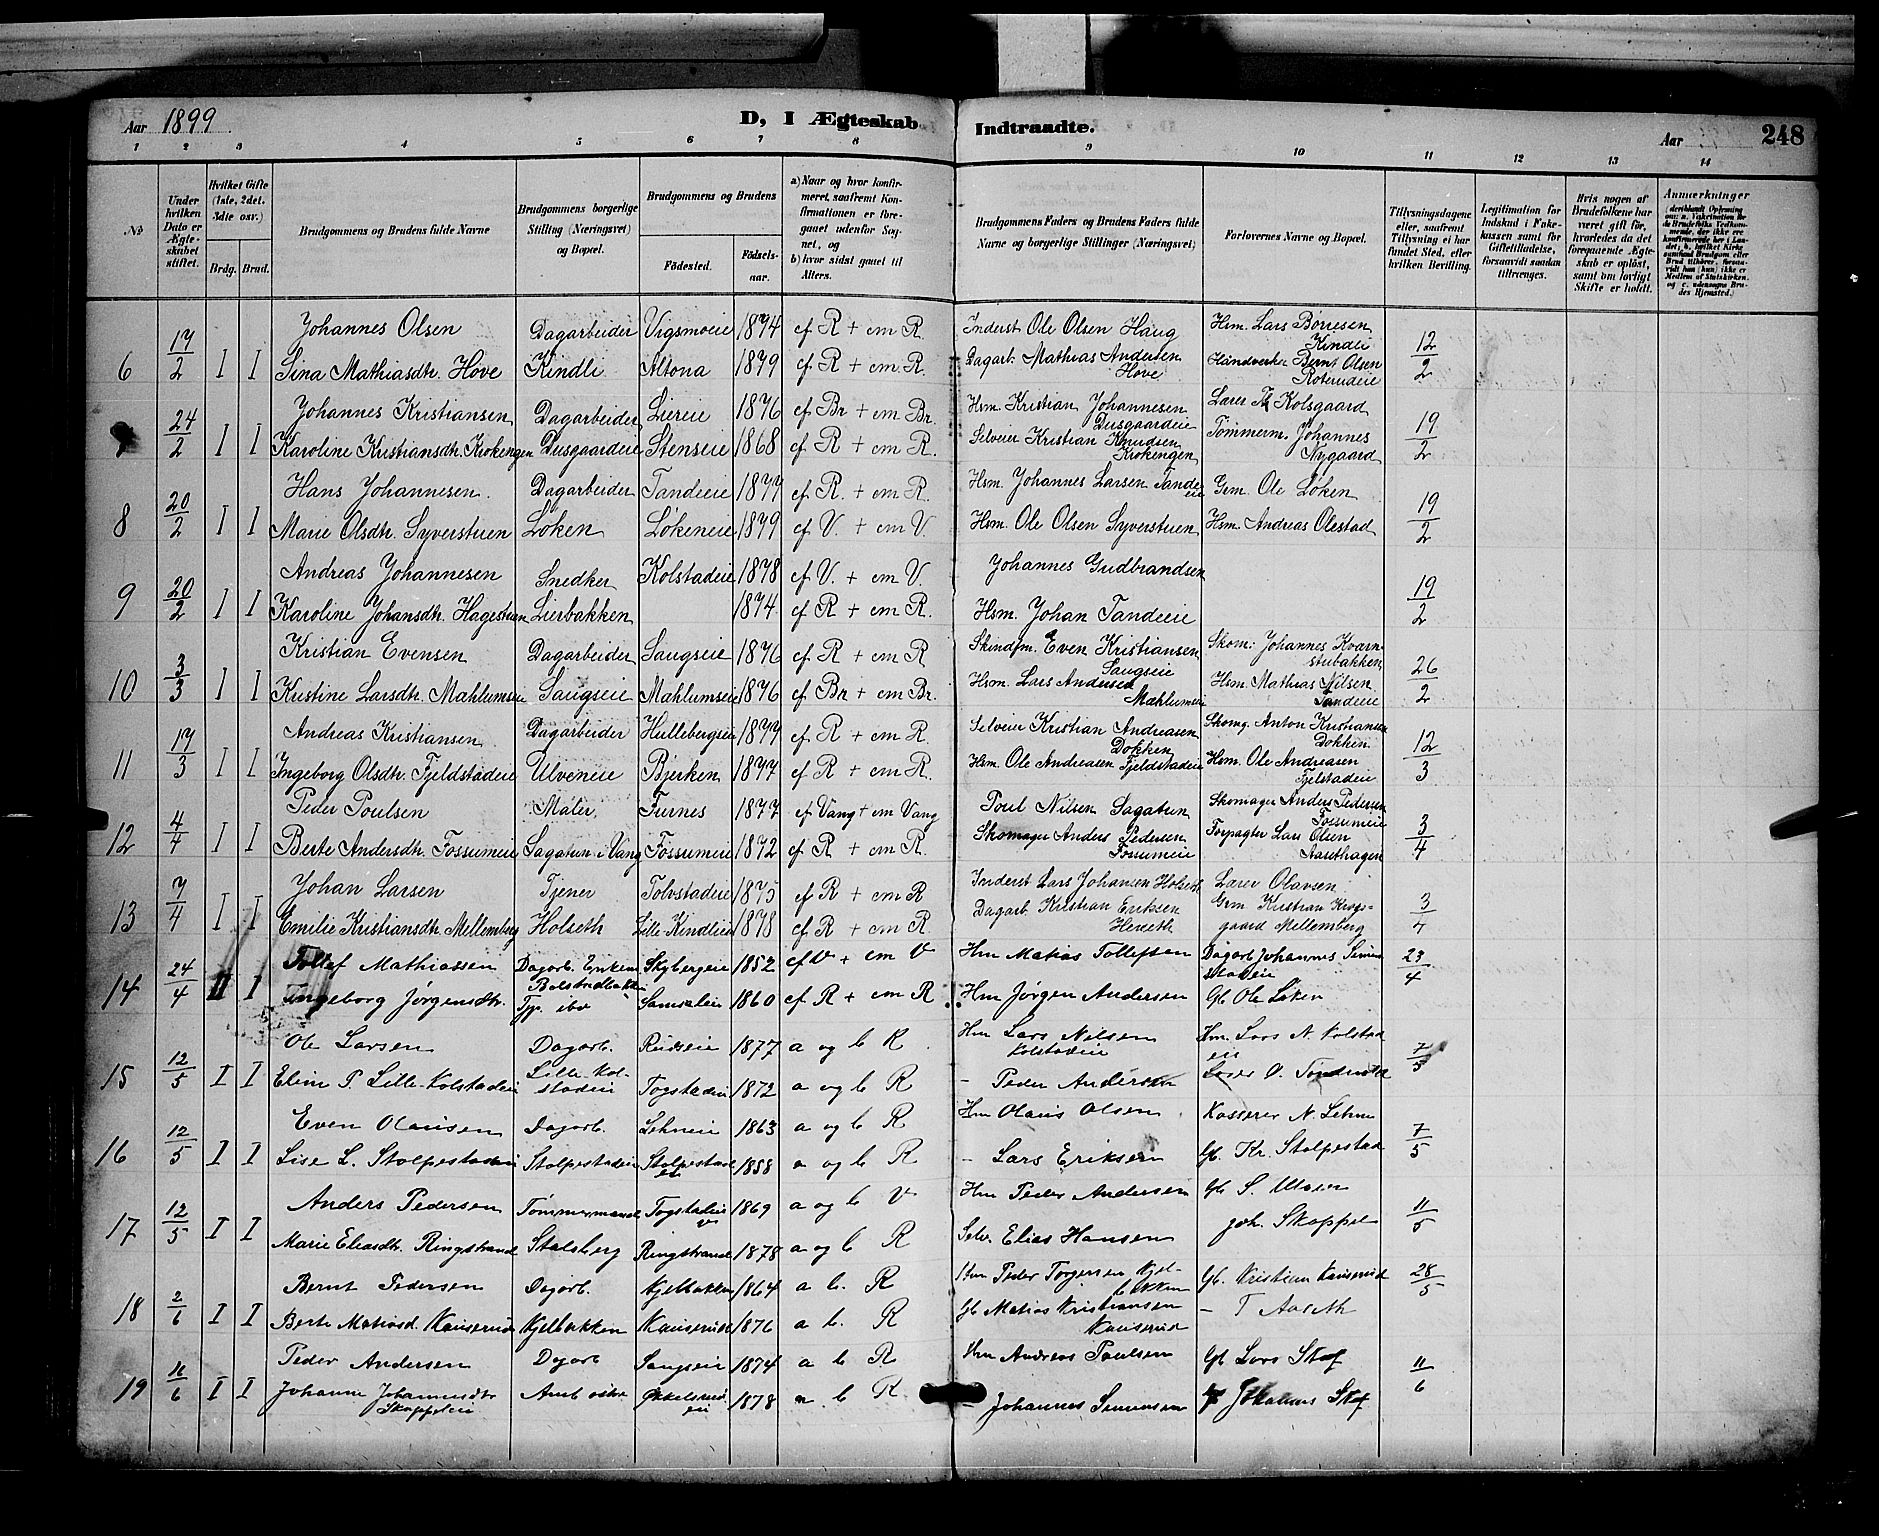 Aar 1899
D, I Ægteskab
Indtraadte.
Aar
248
1 2 3 4 5 6 7 8 9 10 11 12 13 14
No
Under hvilken Dato er Ægteskabet stiftet.
Hvilket Gifte (1ste, 2det, 3die osv.)
Brdg. Brud.
Brudgommens og Brudens fulde Navne
Brudgommens borgerlige Stilling (Næringsvei) og Bopæl.
Brudgommens og Brudens
Fødested.
Fødselsaar.
a) Naar og hvor konfirmeret, saafremt Konfirmationen er foregaaet udenfor Sognet, og
b) hvor sidst gaaet til Alters.
Brudgommens Faders og Brudens Faders fulde Navne og borgerlige Stillinger (Næringsvei)
Forlovernes Navne og Bopæl.
Tillysningsdagene eller, saafremt Tillysning ei har fundet Sted, efter hvilken Bevilling.
Legitimation for Indskud i Enkekassen samt for Giftetilladelse, forsaavidt saadan tiltrænges.
Hvis nogen af Brudefolkene har været gift før, hvorledes da det foregaaende Ægteskab er opløst, samt om lovligt Skifte er holdt.
Anmærkninger
Johannes Olsen Dagarbeider Vigsmoeie 1874 cf R + cm R. Inderst Ole Olsen Haug Hsm. Lars Borresen Kindli
6 17/2 I I Sina Mathiasdtr. Hove Kindli Altona 1879 cf R + cm R. Dagarb. Mathias Andersen Hove Håndverker Bernt Olsen Roterudeie 12/2
Johannes Kristiansen Dagarbeider Liereie 1876 cf Br + cm Br. Hsm. Kristian Johannesen Dusgaardeie Lærer Kolsgaard
7 24/2 I I Karoline Kristiansdtr. Krokengen Dusgaardeie Stenseie 1868 cf R + cm R. Selveier Kristian Knudsen Krokengen Tømmerm. Johannes Nygaard 19/2
Hans Johannesen. Dagarbeider Tandeeie 1877 cf R. + cm R. Hsm. Johannes Larsen Tandeeie Grm. Ole Løken
8 20/2 I I Marie Olsdtr. Syverstuen Løken Løkeneie 1879 cf V. + cm V. Hsm. Ole Olsen Syverstuen Hsm. Andreas Olestad 19/2
Andreas Johannesen Snedker Kolstadeie 1878 cf V. + cm V. Johannes Gudbrandsen
9 20/2 I I Karoline Johansdtr. Hagestuen Lierbakken 1874 cf R + cm R. Hsm. Johan Tandeeie 19/2
Kristian Evensen Dagarbeider Saugseie 1876 cf R + cm R Skindfm. Even Kristiansen Saugseie Skom: Johannes Kvarnstubakken
10 3/3 I I Kristine Larsdtr. Mæhlumseie Saugseie Mæhlumseie 1876 cf Br + cm Br. Hsm. Lars Andersen Mæhlumseie Hsm. Mathias Nilsen Tandeeie 26/2
Andreas Kristiansen Dagarbeider Hullebergseie 1877 cf R + cm R. Selveier Kristian Andreasen Dokken Skomg. Anton Kristiansen Dokken
11 17/3 I I Ingeborg Olsdtr. Fjeldstadeie Ulveneie Bjerken 1877 cf R + cm R. Hsm. Ole Andreasen Fjeldstadeie Hsm. Ole Andreasen Fjelstadeie 12/3
Peder Poulsen Maler, Furnes 1877 cf Vang + cm Vang Poul Nilsen Sagatun Skomager Anders Pedersen Fossumeie
12 4/4 I I Berte Andersdtr. Fossumeie Sagatun i Vang Fossumeie 1872 cf R + cm R. Skomager Anders Pedersen Fossumeie Forpagter Lars Olsen Aasethagen 3/4
Johan Larsen Tjener Tolvstadeie 1875 cf R + cm R Inderst Lars Johansen Holseth Lærer Olavsen
13 7/4 I I Emilie Kristiansdtr. Mellemberg Holseth Lille-Kindlieie 1878 cf R + cm R. Dagarb. Kristian Eriksen Grm Kristian Krogsgaard Mellemberg 3/4
Tollef Mathiassen Dagarb. Enkem Bolstadbakken Skybergeie 1852 cf V + cm V Hm Matias Tollefsen Dagarb Johannes
14 24/4 II I Ingeborg Jørgensdtr. Tj. ibd 1860 cf R + cm R Hm Jørgen Andersen Gb. Ole Løken 23/4
Ole Larsen Dagarb. Rudseie 1877 a og b R. Hm Lars Nilsen Kolstadeie Hm. Lars N. Kolstadeie
15 12/5 I I Eline P. Lille-Kolstadeie Lille-Kolstadeie Togstadeie 1872 a og b R - Peder Andersen Lærer O. 7/5
Even Olausen Dagarb. Lehneie 1863 a og b R Hm Olaus Olsen Kasserer N. Lehne
16 12/5 I I Lise L. Stolpestadeie Stolpestadeie Stolpestadeie 1858 a og b R - Lars Eriksen Gb. Kr. Stolpestad 7/5
Anders Pedersen Tømmermand Togstadeie 1869 a og b V Hm Peder Andersen Gb S.
17 12/5 I I Marie Eliasdtr. Ringstrand Stalsberg Ringstrand 1878 a og b R Selv. Elias Hansen Joh. Skappel 11/5
Bernt Pedersen Dagarb. Kjelbakken 1864 a b. R Hm Peder Torgersen Kjelbakken Gb. Kristian Kauserud
18 2/6 I I Berte Matiasd. Kauserud Kjelbakken Kauserud 1876 a b. R Gb Matias Kristiansen Kauserud - T Aaseth 28/5
Peder Andersen Dagarb Saugseie 1874 a b R Hm Andreas Poulsen Gb Lars Skof
19 11/6 I I Johanne Johannesdtr Skappeleie 1878 a. b R Johannes Simensen Johannes Skof 11/6